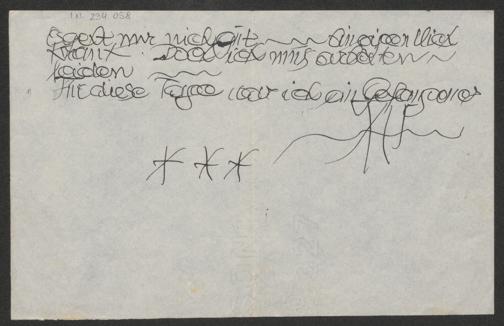 I.N. 234.058
Es geht mir nicht gut ~~~ Bin gipon 
krank. Doch ich muß arbeiten ~~
Leiden ~~~
Alle diese Tage war ich ein Gefangener
* * *